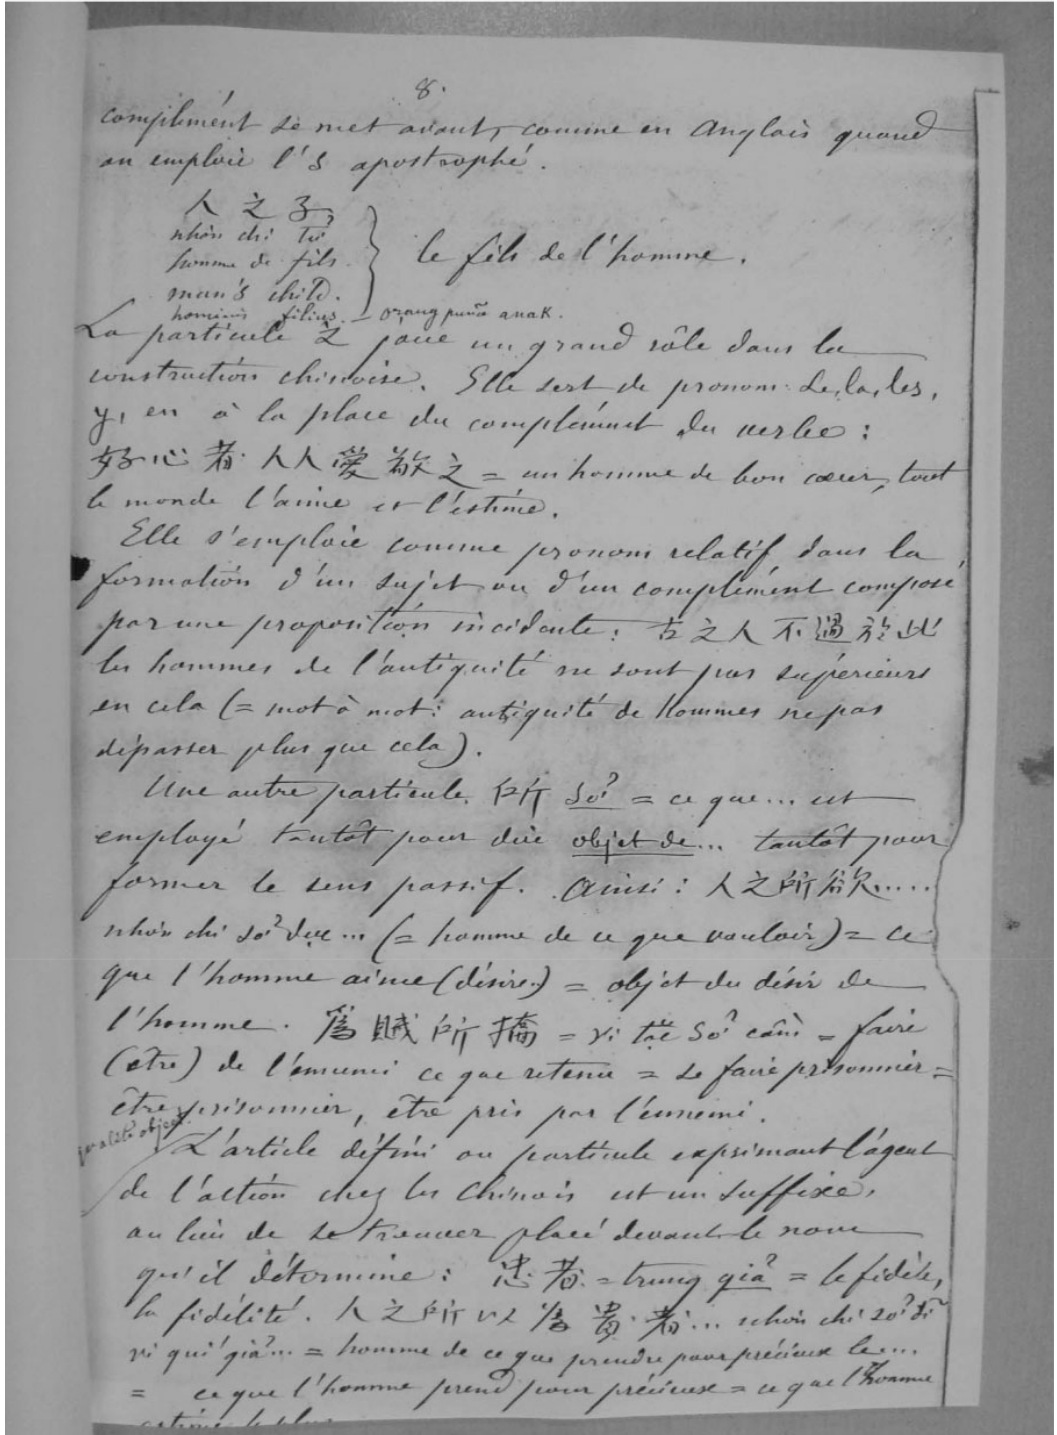 8.
complément se met avant, comme en Anglais quand
on emploie l's apostrophé.
人 之 子,
nhơn chi tử
homme de fils
man's child.
hominis filius. — orang puña anak.
le fils de l'homme.
La particule 之 joue un grand rôle dans la
construction chinoise. Elle sert de pronom: le, la, les,
y, en à la place du complément du verbe:
好心者人人愛敬之 = un homme de bon cœur, tout
le monde l'aime et l'estime.
Elle s'emploie comme pronom relatif dans la
formation d'un sujet ou d'un complément composé
par une proposition incidente: 古之人不過於此
les hommes de l'antiquité ne sont pas supérieurs
en cela (= mot à mot: antiquité de hommes ne pas
dépasser plus que cela).
Une autre particule 所 sở = ce que... est
employé tantôt pour dire objet de... tantôt pour
former le sens passif. Ainsi: 人之所欲.....
nhơn chi sở dục... (= homme de ce que vouloir) = ce
que l'homme aime (désire..) = objet du désir de
l'homme. 為賊所擒 = vi tặc sở cầm = faire
(être) de l'ennemi ce que retenir = se faire prisonnier =
être prisonnier, être pris par l'ennemi.
L'article défini ou particule exprimant l'agent
de l'action chez les Chinois est un suffixe,
au lieu de se trouver placé devant le nom
qu'il détermine: 忠者 = trung giả = le fidèle,
la fidélité. 人之所以為貴者... nhơn chi sở dĩ
vi quí giả... = homme de ce que prendre pour précieux le...
= ce que l'homme prend pour précieux = ce que l'homme
estime le plus